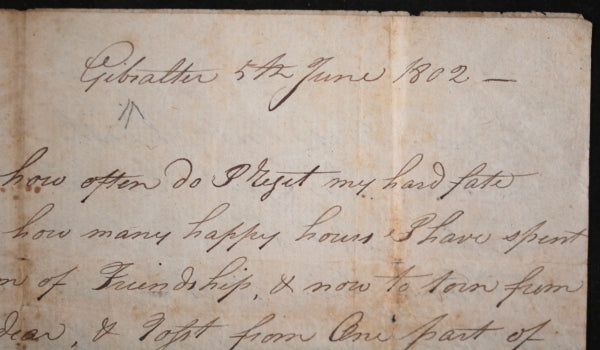 Gibralter 5th June 1802 —
how often do I regit my hard fate
how many happy hours I have spent
of Friendship, & now to torn from
dear, & Tosst from One part of